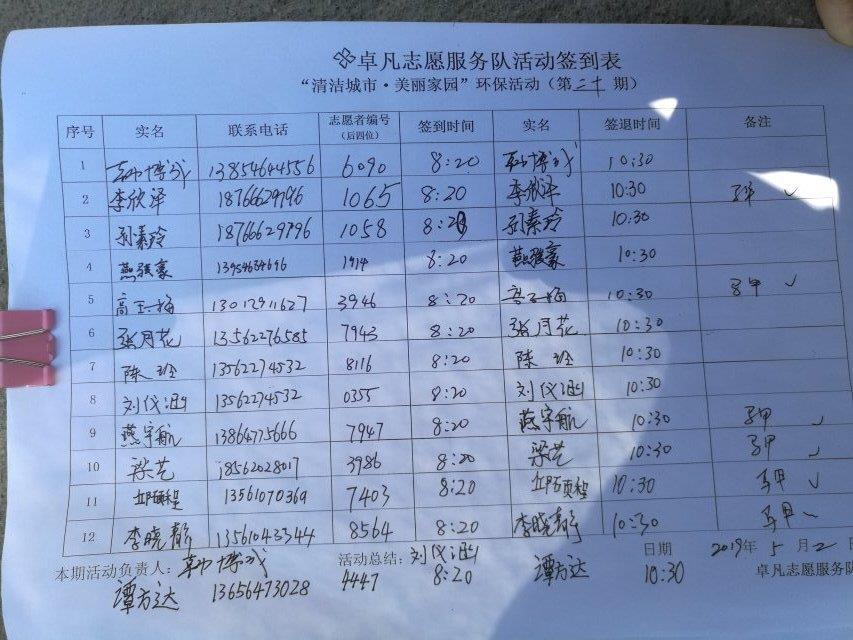 卓凡志愿服务队活动签到表
“清洁城市·美丽家园”环保活动（第二十期）
序号 实名 联系电话 志愿者编号（后四位） 签到时间 实名 签退时间 备注
1 韩博成 13854644556 6090 8:20 韩博成 10:30
2 李欣泽 18766629796 1065 8:20 李欣泽 10:30 马甲 ✓
3 孙素玲 18766629796 1058 8:20 孙素玲 10:30
4 燕雅豪 13954634696 1914 8:20 燕雅豪 10:30
5 高玉梅 13012911627 3946 8:20 高玉梅 10:30 马甲 ✓
6 张月花 13562276585 7943 8:20 张月花 10:30
7 陈玲 13562274532 8116 8:20 陈玲 10:30
8 刘仪涵 13562274532 0355 8:20 刘仪涵 10:30
9 燕宇航 13864775666 7947 8:20 燕宇航 10:30 马甲 ✓
10 梁艺 18562028017 3986 8:20 梁艺 10:30 马甲 ✓
11 13561070369 7403 8:20 10:30 马甲 ✓
12 李晓静 13561043344 8564 8:20 李晓静 10:30 马甲
本期活动负责人：韩博成 活动总结：刘仪涵 日期 2019年5月2日
谭方达 13656473028 4447 8:20 谭方达 10:30 卓凡志愿服务队